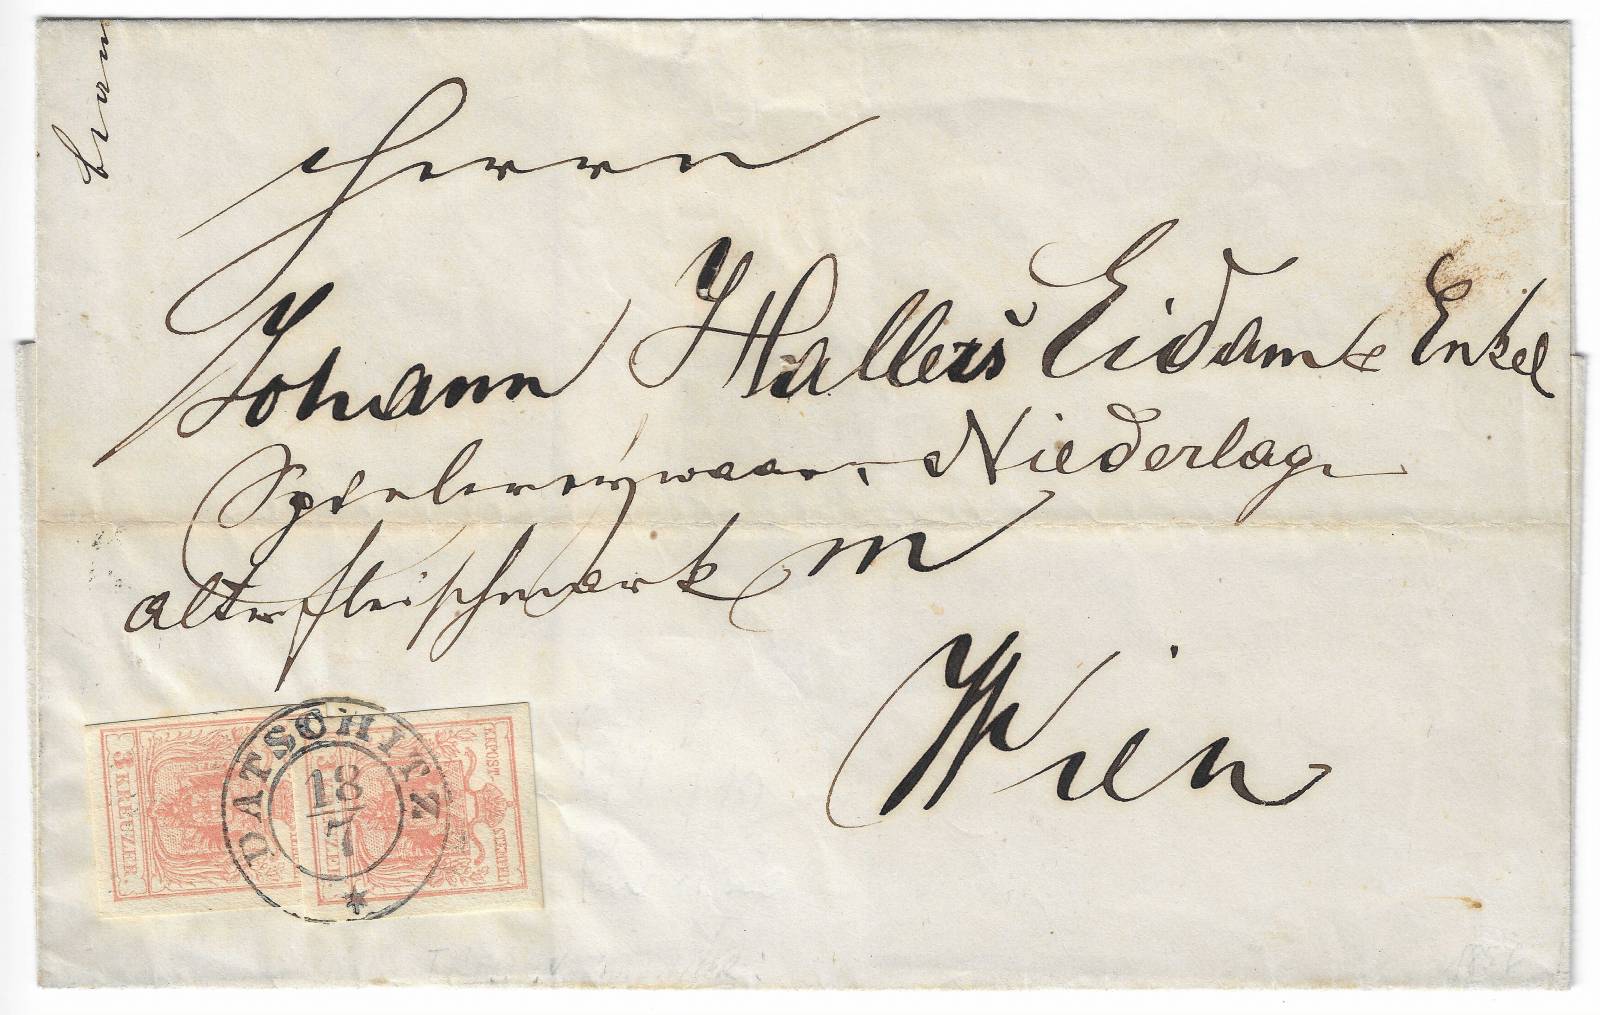 Herrn
Johann Hallers Eidam & Enkel
Spielereywaaren Niederlage
alter fleischmark in
Wien
DATSCHITZ
18
7
3 KREUZER
KKPOST-STEMPEL
3 KREUZER